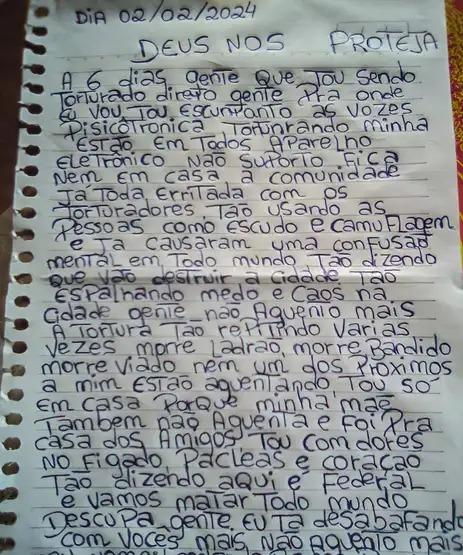 DiA 02/02/2024
DEUS NOS PROTEJA
A 6 dias gente Que Tou Sendo
Torturado direto gente Pra onde
Eu VoU Tou EscunPonto as Vozes
Pisicotronica Torunrando minha
ESTÃO Em Todos APareLho
ELeTrônico Não SuPorto Fica
Nem Em Casa a Comunidade
Ta Toda ErriTada com os
Torturadores Tão usando as
Pessoas como Escudo e CamuFlagem
e Ja Causaram uma confusão
mental em Todo mundo Tão dizendo
que Vão destruir a Cidade Tão
Espalhando medo e Caos na
Cidade gente não Aguento mais
A Tortura Tão rePitindo Varias
Vezes morre Ladrão, morre Bandido
morre Viado nem um dos Próximos
a mim ESTão aguentando Tou Só
Em Casa Porque minha mãe
Tambem não Aguenta e Foi Pra
Casa dos Amigos Tou Com dores
No Figado, Pacleas e coração
Tão dizendo aqui e Federal
e Vamos matar Todo mundo
DescuPa gente EU Ta desabafando
Com Voces mais Não Aguento mais